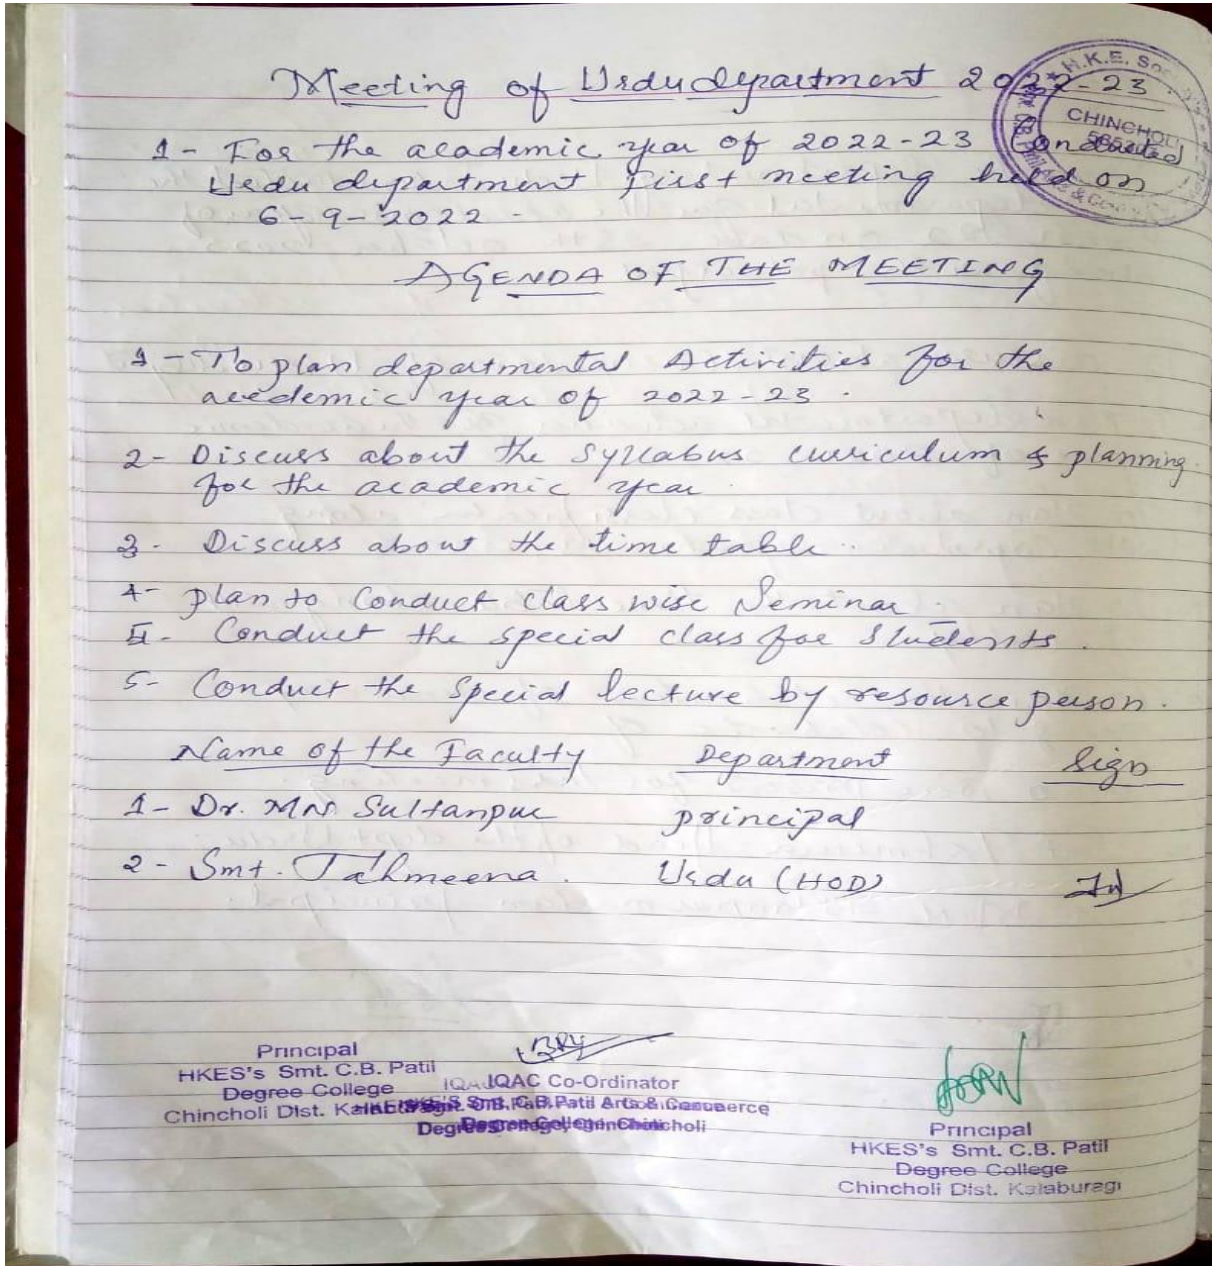 Meeting of Urdu department 2022-23
H.K.E. Soc
CHINCHOLI
1- For the academic year of 2022-23 Conducted
Urdu department First meeting held on
6-9-2022.
AGENDA OF THE MEETING
1- To plan departmental Activities for the
acedemic year of 2022-23.
2- Discuss about the syllabus curriculum & planning
for the academic year.
3. Discuss about the time table..
4- plan to Conduct class wise Seminar.
5. Conduct the special class for students.
5- Conduct the special lecture by resource person.
Name of the Faculty Department Sign
1- Dr. MN Sultanpur principal
2- Smt. Tahmeena. Urdu (HOD)
Principal
HKES's Smt. C.B. Patil
Degree College
Chincholi Dist.
IQAC Co-Ordinator
Principal
HKES's Smt. C.B. Patil
Degree College
Chincholi Dist. Kalaburagi